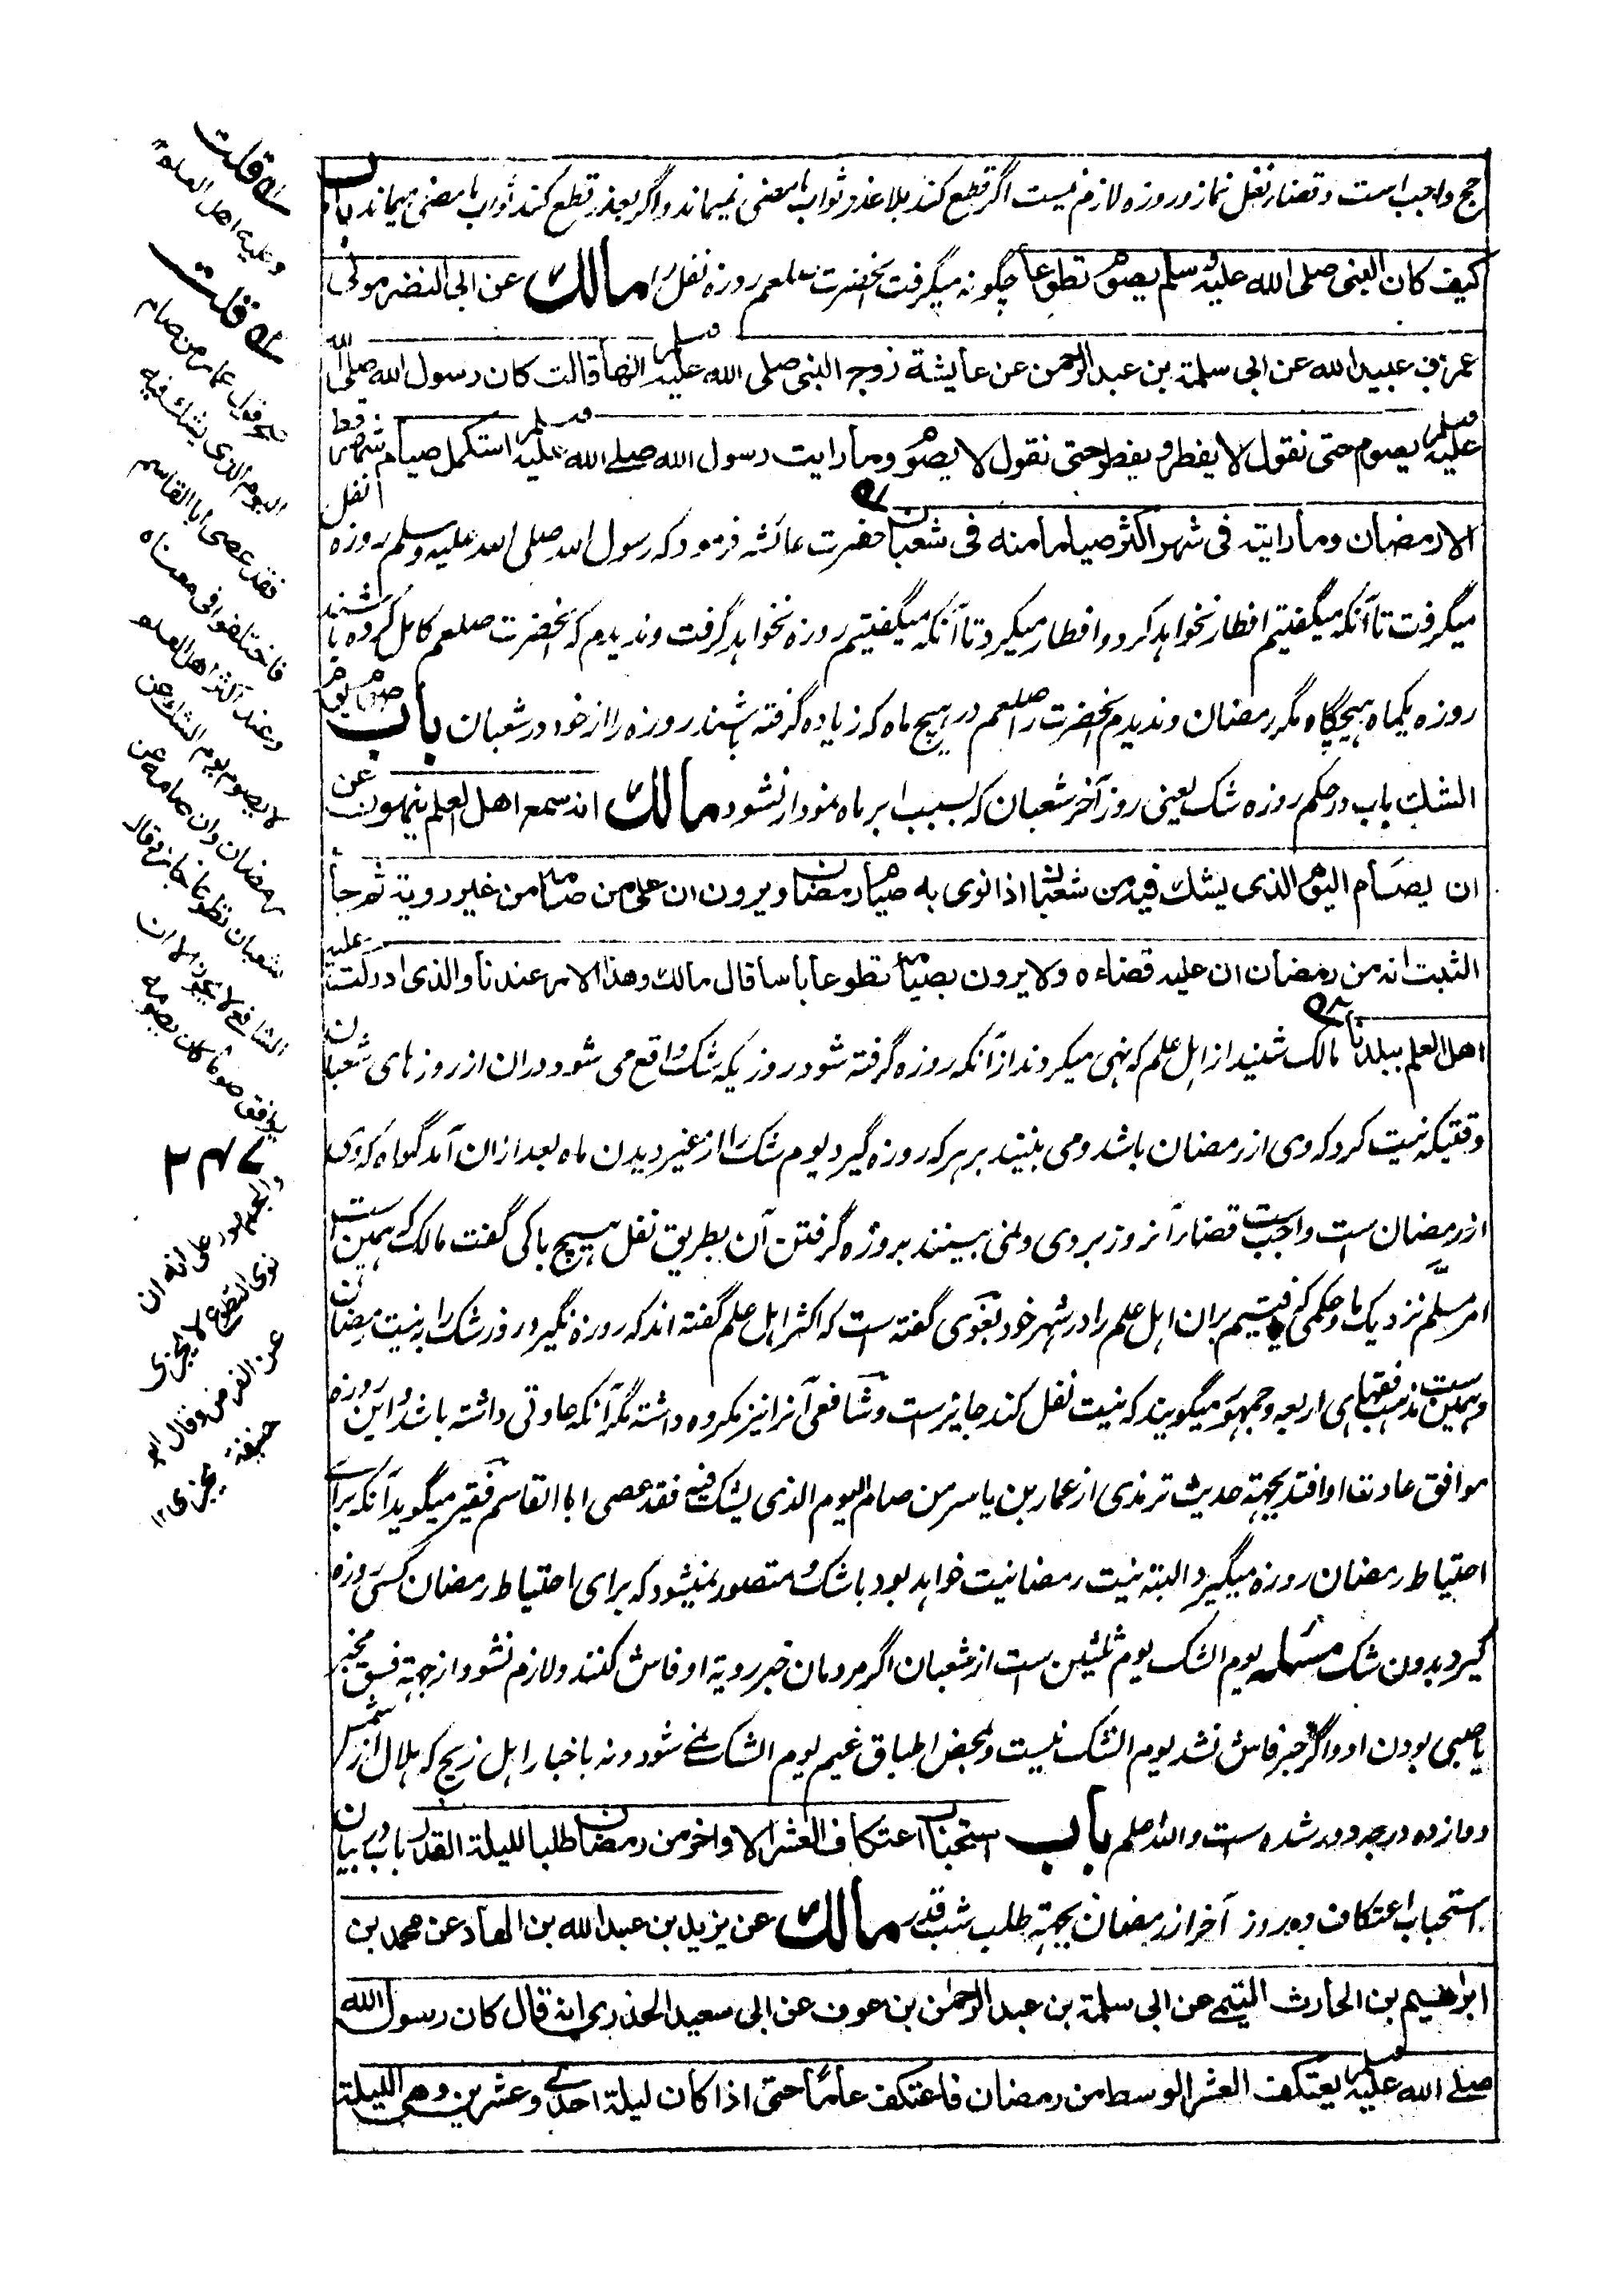 حج واجب است وقضاء نفل نماز وروزه لازم نیست اگر قطع کند بلا عذر ثواب ما مضی نمیماند واگر بعذر قطع کند ثواب ما مضی میماند باب
کیف کان النبی صلی الله علیه وسلم یصوم تطوعا چگونه میگرفت آنحضرت صلعم روزه نفل را مالک عن ابی النضر مولی
عمر بن عبید الله عن ابی سلمة بن عبد الرحمن عن عایشة زوج النبی صلی الله علیه وسلم انها قالت کان رسول الله صلی الله
علیه وسلم یصوم حتی نقول لا یفطر ویفطر حتی نقول لا یصوم وما رایت رسول الله صلے الله علیه وسلم استکمل صیام شهر قط
الا رمضان وما رایته فی شهر اکثر صیاما منه فی شعبان حضرت عائشه فرمود که رسول الله صلی الله علیه وسلم روزه نفل
میگرفت تا آنکه میگفتیم افطار نخواهد کرد وافطار میکرد تا آنکه میگفتیم روزه نخواهد گرفت وندیدم که آنحضرت صلعم کامل کرده باشند
روزه یکماه هیچگاه مگر رمضان وندیدم آنحضرت را صلعم در هیچ ماه که زیاده گرفته باشند روزه را از خود در شعبان باب صیام یوم
الشك باب در حکم روزه شک یعنی روز آخر شعبان که بسبب ابر ماه نمودار نشود مالک انه سمع اهل العلم ینهون عن
ان یصام الیوم الذی یشك فیه من شعبان اذا نوی به صیام رمضان ویرون ان علی من صامه من غیر رویة ثم جا
الثبت انه من رمضان ان علیه قضاءه ولا یرون بصیامه تطوعا باسا قال مالك وهذا الامر عندنا والذی ادرکت علیه
اهل العلم ببلدنا مالک شنید از اهل علم که نهی میکردند از آنکه روزه گرفته شود روزیکه شک واقع می شود دران از روزهای شعبان
وقتیکه نیت کرد که وی از رمضان باشد ومی بینند بر هر که روزه گیرد یوم شک را از غیر دیدن ماه بعد ازان آمد گواه که وی
از رمضان ست واجب ست قضاء آنروز بر وی ونمی بینند بروزه گرفتن آن بطریق نفل هیچ باکی گفت مالک که همین ست
امر مسلّم نزدیک ما وحکمی که یافتیم بران اهل علم را در شهر خود بغوی گفته است که اکثر اهل علم گفته اند که روزه نگیرد روز شک را به نیت رمضان
وهمین ست مذهب فقهای اربعه وجمهور میگویند که نیت نفل کند جایز است وشافعی آنرا نیز مکروه داشته مگر آنکه عادتی داشته باشد واین روزه
موافق عادت او افتد بجهته حدیث ترمذی از عمار بن یاسر من صام الیوم الذی یشک فیه فقد عصی ابا القاسم فقیر میگوید آنکه برای
احتیاط رمضان روزه میگیرد البته نیت رمضانیت خواهد بود با شک ومتصور نمیشود که برای احتیاط رمضان کسی روزه
گیرد بدون شک مسئله یوم الشک یوم ثلثین ست از شعبان اگر مردمان خبر رویة او فاش کنند ولازم نشود از جهته فسق مخبر
یا صبی بودن او واگر خبر فاش نشد یوم الشک نیست وبمحض اطباق غیم یوم الشک نمی شود ونه باخبار اهل زیج که هلال از شمس
دوازده درجه دور شده ست والله اعلم باب استحباب اعتکاف العشر الاواخر من رمضان طلبا للیلة القدر باب در بیان
استحباب اعتکاف ده روز آخر از رمضان بجهته طلب شب قدر مالک عن یزید بن عبد الله بن الهاد عن محمد بن
ابراهیم بن الحارث التیمی عن ابی سلمة بن عبد الرحمن بن عوف عن ابی سعید الخدری انه قال کان رسول الله
صلے الله علیه وسلم یعتکف العشر الوسط من رمضان فاعتکف عاما حتی اذا کان لیلة احدے وعشرین وهی اللیلة
له قلت
وعلیه اهل العلم ۱۲
له قلت
قول عمار من صام
الیوم الذی یشك فیه
فقد عصی ابا القاسم
فاختلفوا فی معناه
وعند اکثر اهل العلم
لا یصوم یوم الشك عن
رمضان وان صامه عن
شعبان تطوعا جاز وقال
الشافعی لا یجوز الا ان
یوافق صوما کان یصومه
والجمهور علی انه ان
نوی التطوع لا یجزی
عن الفرض وقال ابو
حنیفة یجزی ۱۲